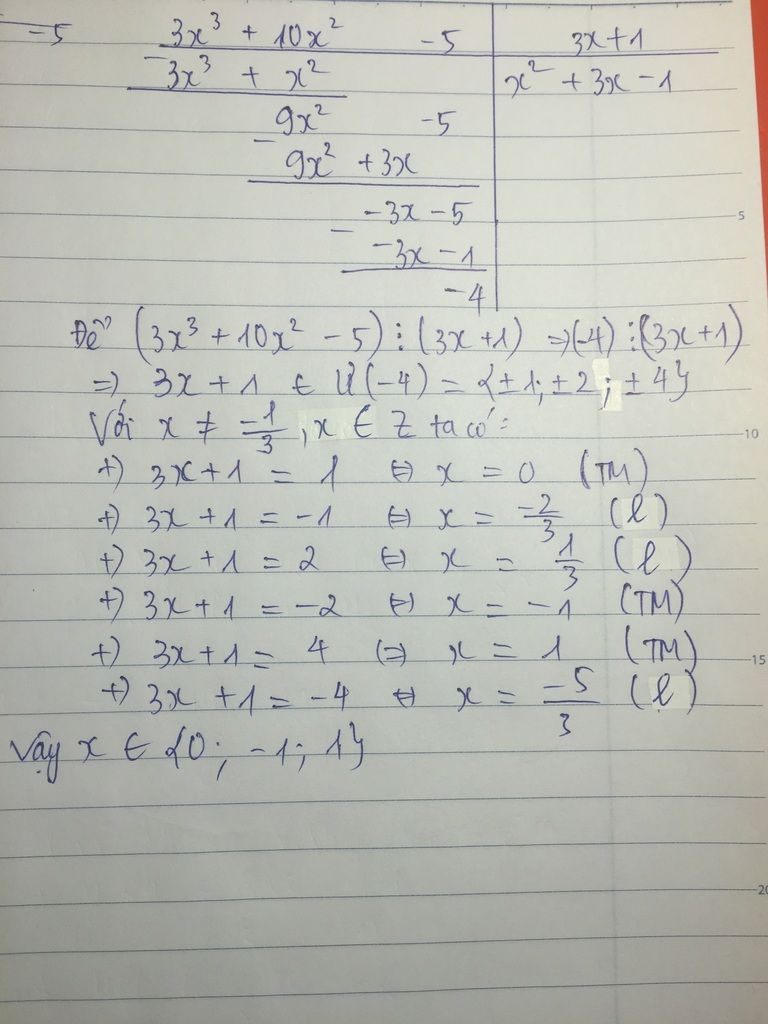 -5 3x³ + 10x² -5 3x+1
- 3x³ + x² x² + 3x - 1
9x² -5
- 9x² + 3x
-3x - 5
- -3x - 1
-4
Để (3x³ + 10x² - 5) ⋮ (3x+1) => (-4) ⋮ (3x+1)
=> 3x + 1 ∈ Ư(-4) = {±1; ±2; ±4}
Với x ≠ -1/3, x ∈ Z ta có:
+) 3x+1 = 1 <=> x = 0 (TM)
+) 3x + 1 = -1 <=> x = -2/3 (l)
+) 3x + 1 = 2 <=> x = 1/3 (l)
+) 3x+1 = -2 <=> x = -1 (TM)
+) 3x+1 = 4 <=> x = 1 (TM)
+) 3x + 1 = -4 <=> x = -5/3 (l)
Vậy x ∈ {0; -1; 1}
5
10
15
20